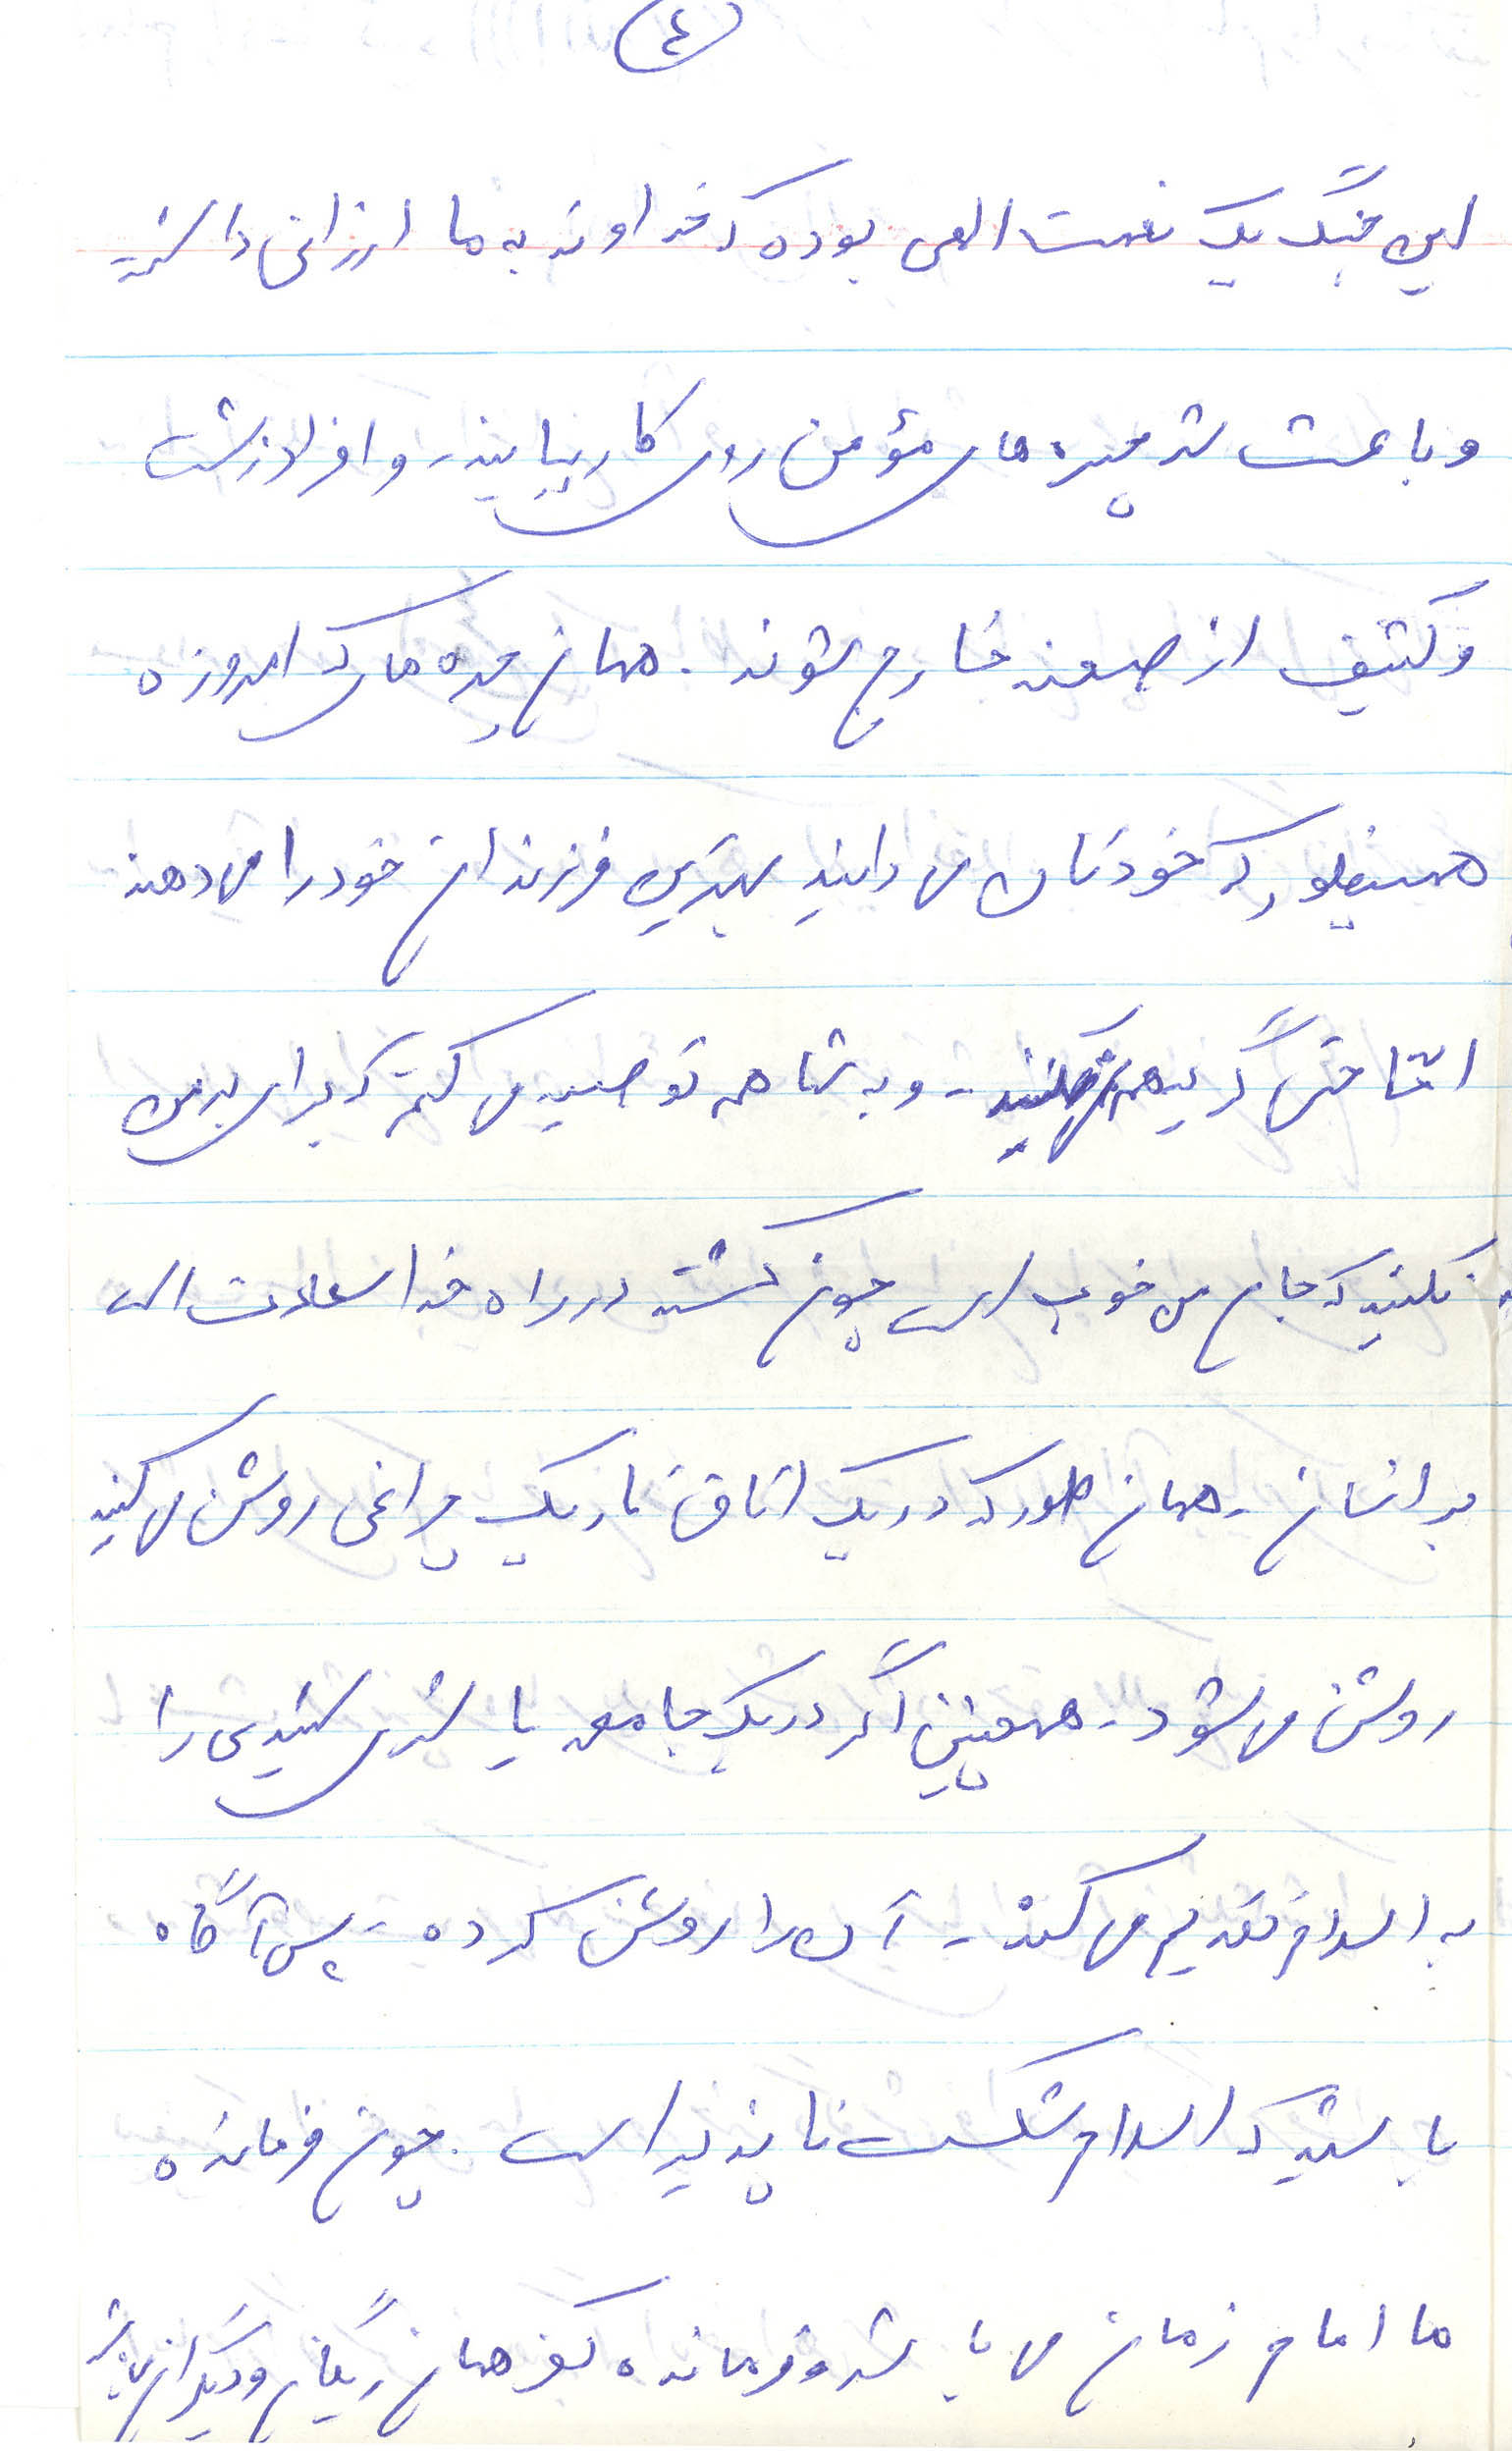 ٤
این جنگ یک نعمت الهی بوده که خداوند به ما ارزانی داشته
و باعث شد چهره های مؤمن روی کار بیایند - و افراد زشت
و کثیف از صحنه خارج شوند . همان چهره های که امروزه
همینطور که خودتان می دانید بهترین فرزندان خود را می دهند
امّا حتی گریه هم نمی کنند - و به شما هم توصیه می کنم که برای من
نکنید که جای من خوب است چون کشته در راه خدا سعادت است
بر انسان - همان طور که در یک اتاق تاریک چراغی روشن می کنید
روشن می شود - همچنین اگر در یک جامعه یا شهری شهیدی را
به اسلام تقدیم می کند - آن را روشن کرده - پس آگاه
باشید که اسلام شکست ناپذیر است . چون فرمانده
ما امام زمان می باشد و فرمانده کفر همان ریگان و دیگران